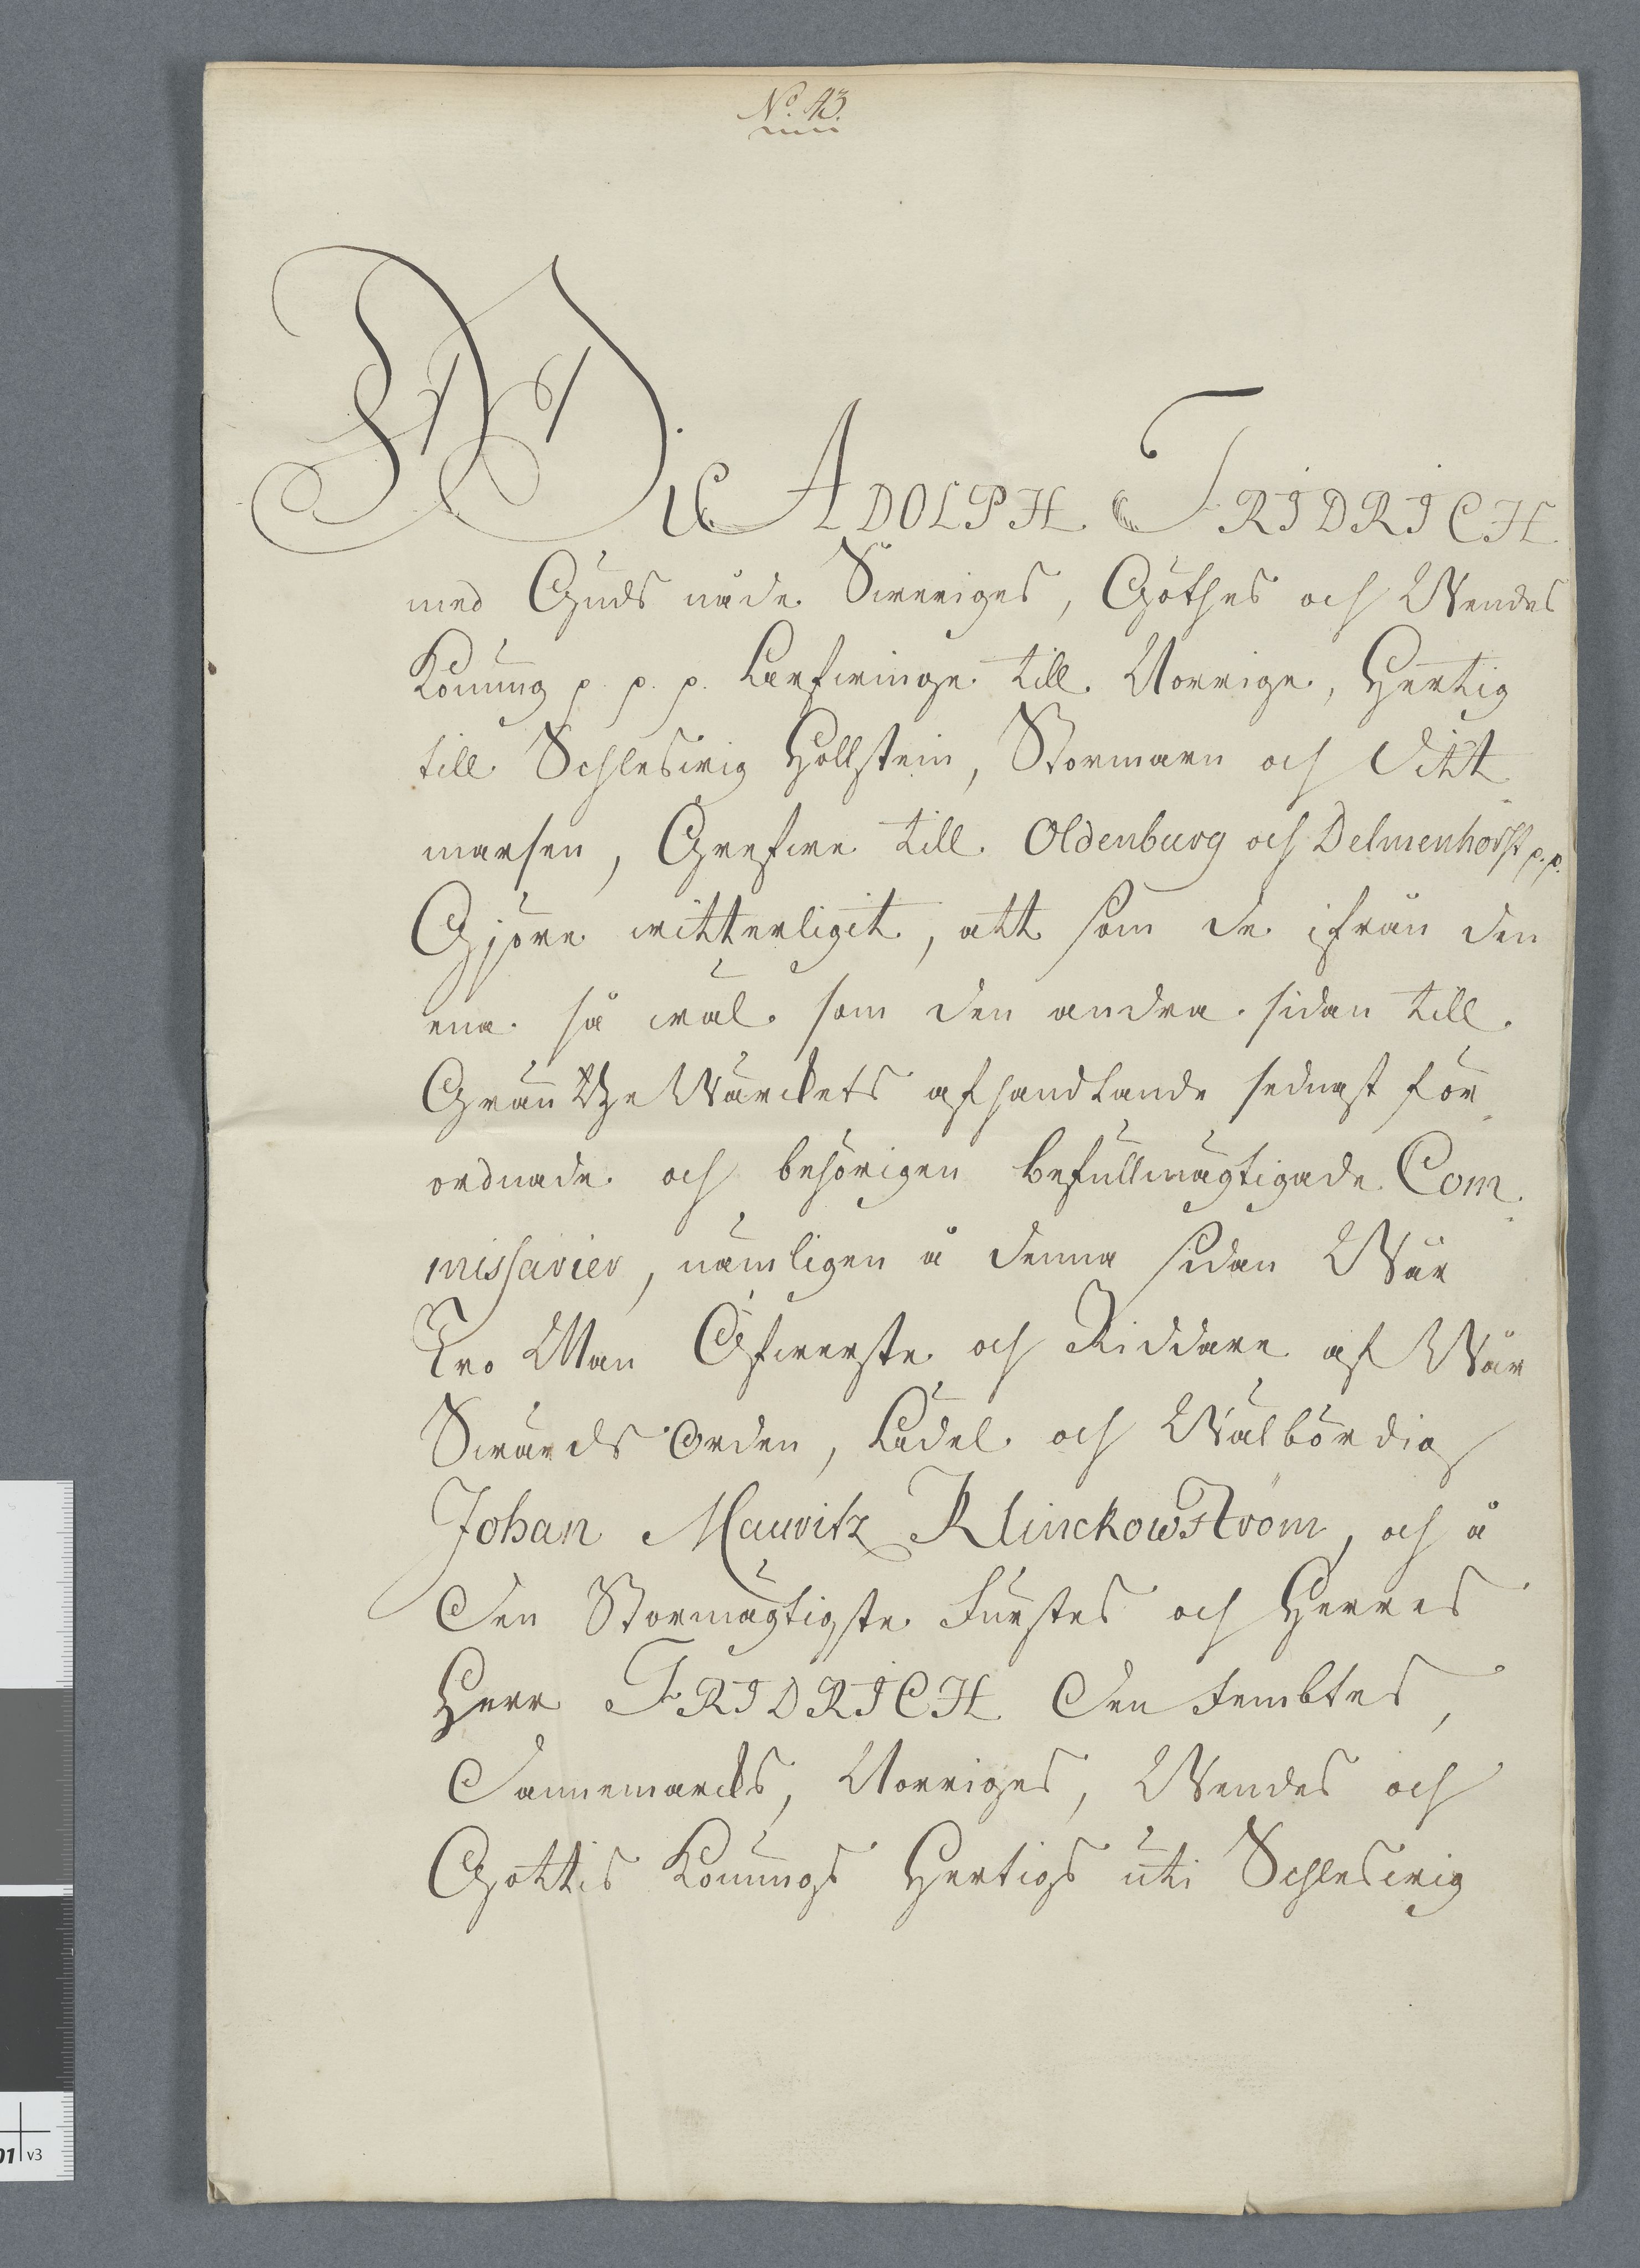 No. 43.
Wi ADOLPH FRIDRICH
med Guds nåde Sweriges, Göthes och Wendes
Konung p. p. p. Larfwinge till Norrige, Hertig
till Schleswig Hollstein, Stormarn och Ditt-
marsen, Grefwe till Oldenburg och Delmenhorst p.p.
Gjöre witterligit, att som de ifrån den
ena så wäl som den andra sidan till
GräntzeWärckets afhandlande sednast för-
ordnade och behörigen befullmägtigade Com-
missarier, nämligen å denna sidan Wår
Tro Man Öfwerste och Riddare af Wår
Swärds Orden, Ladel och Wälbördig
Johan Mauritz Klinckowström, och å
Den Stormägtigste Furstes och Herres
Herr FRIDRICH Den Fembtes,
Dannemarcks, Norriges, Wendes och
Gottis Konungs Hertigs uti Schleswig
01 v3